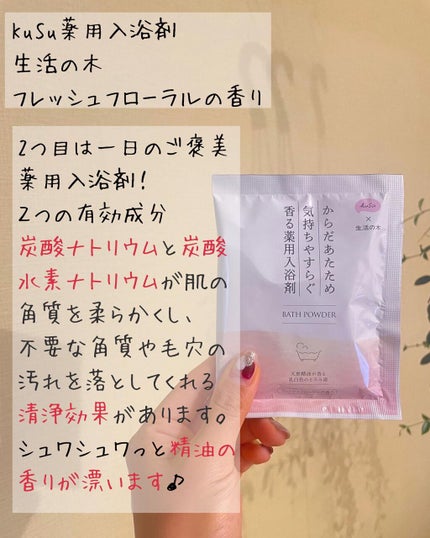 kuSu薬用入浴剤
生活の木
フレッシュフローラルの香り
2つ目は一日のご褒美
薬用入浴剤!
2つの有効成分
炭酸ナトリウムと炭酸
水素ナトリウムが肌の
角質を柔らかくし、
不要な角質や毛穴の
汚れを落としてくれる
清浄効果があります。
シュワシュワっと精油の
香りが漂います♪
kuSu
×
生活の木
からだあたため
気持ちやすらぐ
香る薬用入浴剤
BATH POWDER
天然精油が香る
乳白色のとろみ湯